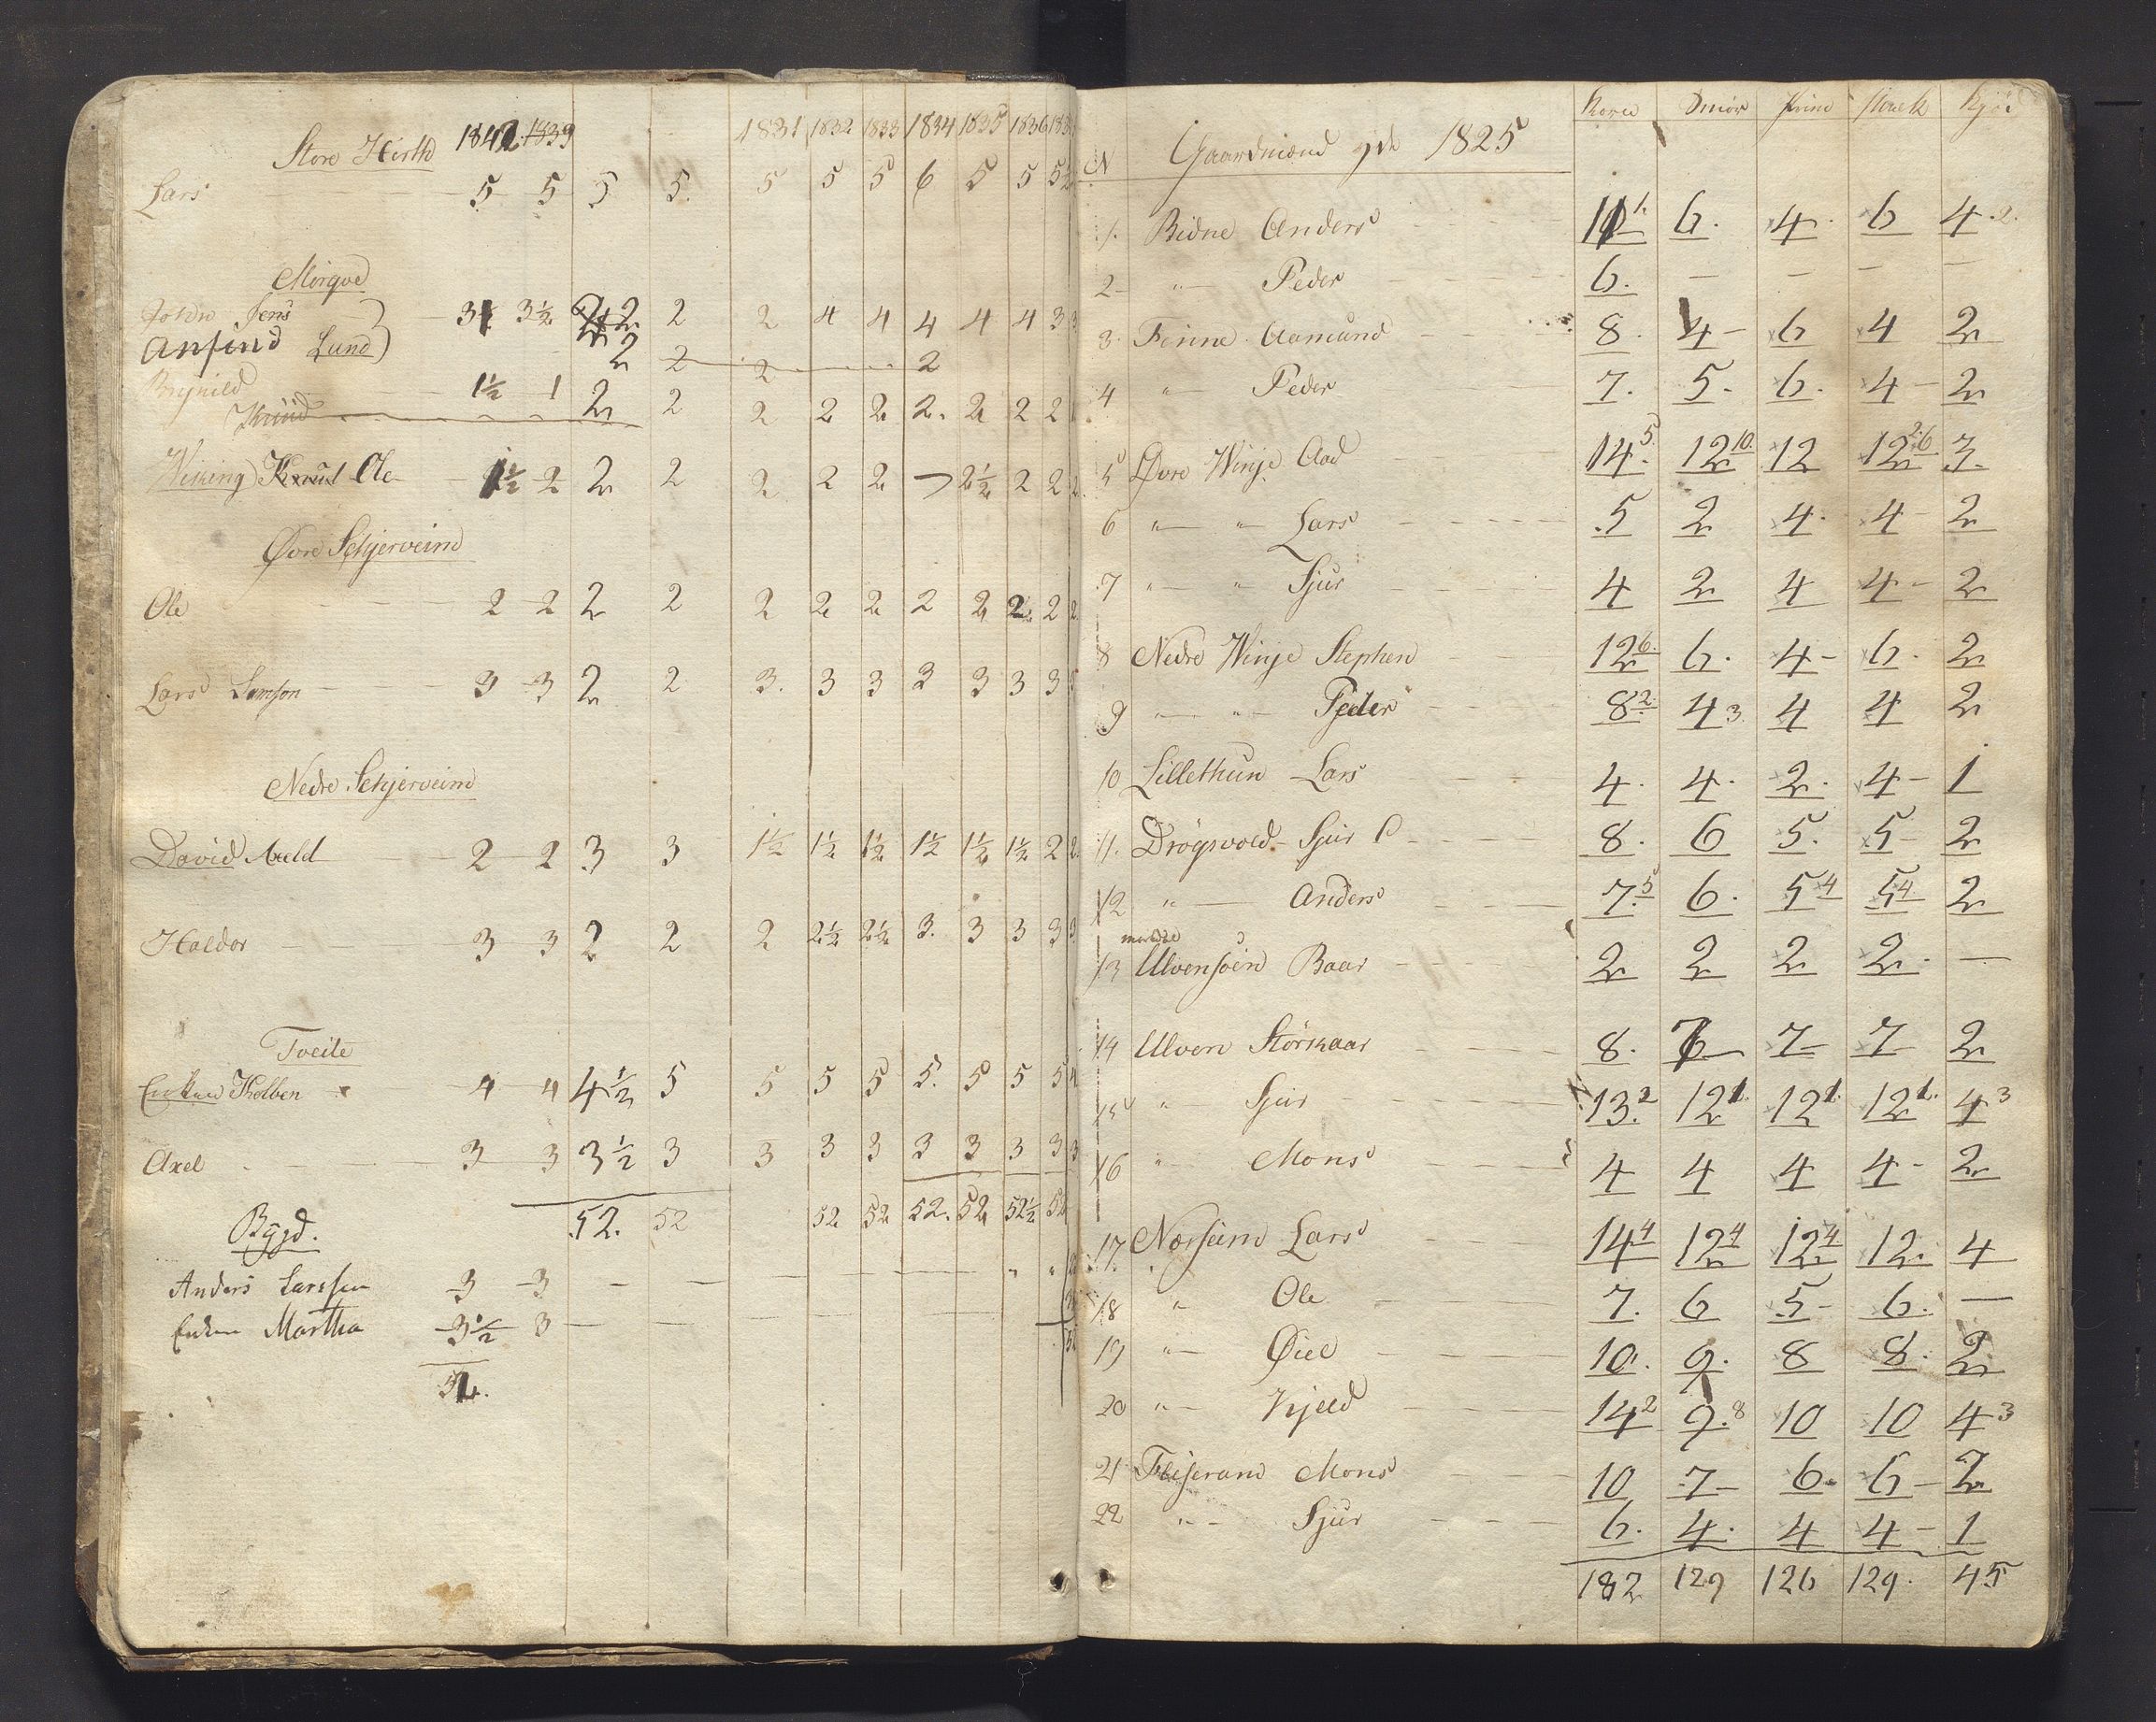 Store Hirth 1842 1839 1831 1832 1833 1834 1835 1836
Lars 5 5 5 5. 5 5 5 6 5 5 5
Mørqve
Jens 3½ 2 2 2 4 4 4 4 4 3
Anfind Lund 2 2 2 2
Brynild 1½ 1 2 2 2 2 2 2. 2 2 2
Knud
Wiking Knud Ole 1½ 2 2 2 2 2 2 2½ 2 2
Øvre Schjerveim
Ole 2 2 2 2 2 2 2 2 2 2 2
Lars Samson 3 3 2 2 3. 3 3 3 3 3 3
Nedre Schjerveim
David Aield 2 2 3 3 1½ 1½ 1½ 1½ 1½ 1½ 2
Haldor 3 3 2 2 2 2½ 2½ 3. 3 3 3
Tveite
Enken Kolben 4 4 4½ 5 5 5 5 5. 5 5 5
Axel 3 3 3½ 3 3 3 3 3 3 3 3
52. 52 52 52 52. 52 52½
Bygd.
Anders Larssen 3 3
Enken Martha 3½ 3
N Gaardmænd 1825 Smør Kjød
1. Bidne Anders 6. 4. 6 4.
2 " Peder 6. — — — —
3. Finne Aamund 8. 4 6 4 2
4 " Peder 7. 5. 6. 4 2
5 Øvre Winje Aad 14.5 12 10 12 12 3.
6 " " Lars 5 2 4. 4 2
7 " " Sjur 4 2 4 4 2
8 Nedre Winje Stephen 12 6. 6. 4 6. 2
9 " " Peder 8 2. 4 3 4 4 2
10 Lillethun Lars 4. 4. 2. 4 1
11. Drøgsvold Sjur 8. 6 5. 5 2
12 " Anders 7.5 6. 5 4 5 4 2
13 Ulvensøen Baar 2 2 2 2. —
14 Ulven Störkaar 8. 7 7 2
15 " Sjur 13.2 12 1 12 1 12 1. 4 3
16 " Mons 4 4 4 4 2
17. Nørheim Lars 14 4 12 4 12 4 12. 4
18 " Ole 7. 6 5 6. —
19 " Øiel 10. 9. 8 8. 2
20 " Kjeld 14 2 9.8 10 10 4 3
21 Mons 10 7 6. 6 2
22 " Sjur 6. 4. 4 4 1
182 129 126 129. 45